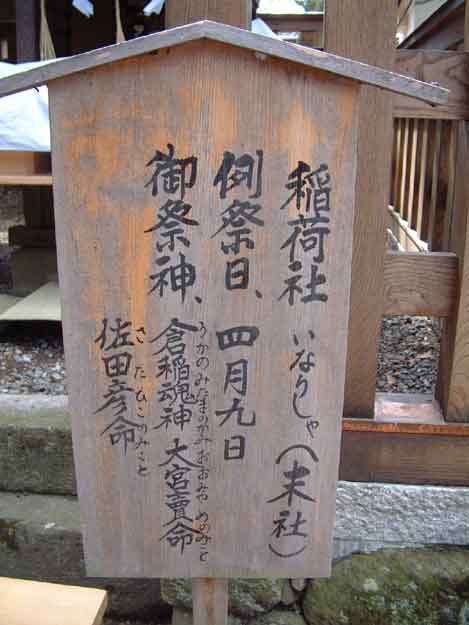 稲荷社 いなりしゃ(末社)
例祭日、四月九日
御祭神、倉稲魂神 大宮賣命
うかのみたまのかみ おおみやめのみこと
佐田彦命
さたひこのみこと